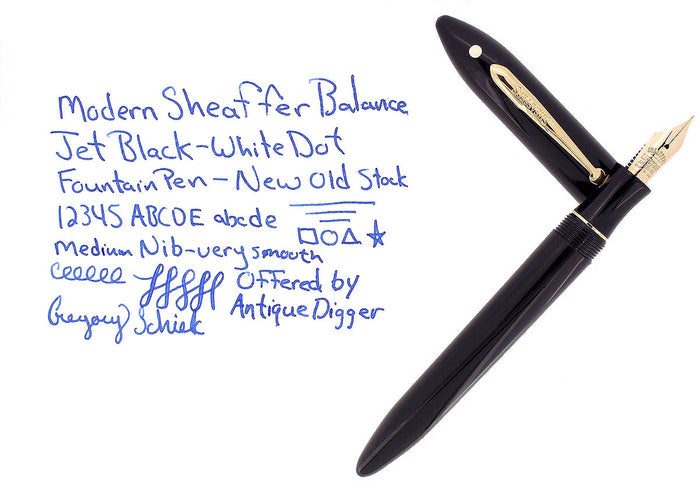 Modern Sheaffer Balance
Jet Black-White Dot
Fountain Pen - New Old Stock
12345 ABCDE abcde
Medium Nib-very smooth
eeeeee Offered by
Gregory Schiek Antique Digger